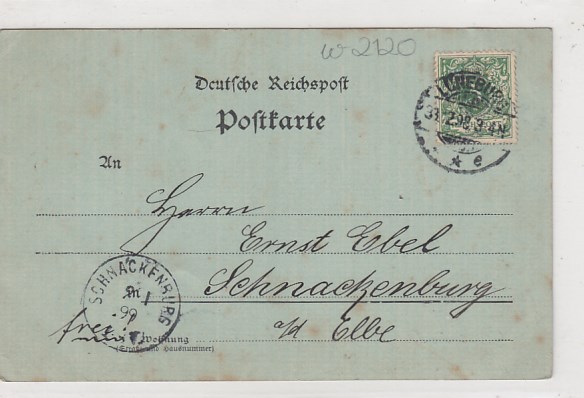 w 2120
Deutsche Reichspost
Postkarte
LÜNEBURG
31.12.98.3-4N
* e
An
Herrn
Ernst Ebel
Schnackenburg
a/d Elbe
SCHNACKENBURG
1
99
frei
Wohnung
(Straße und Hausnummer)